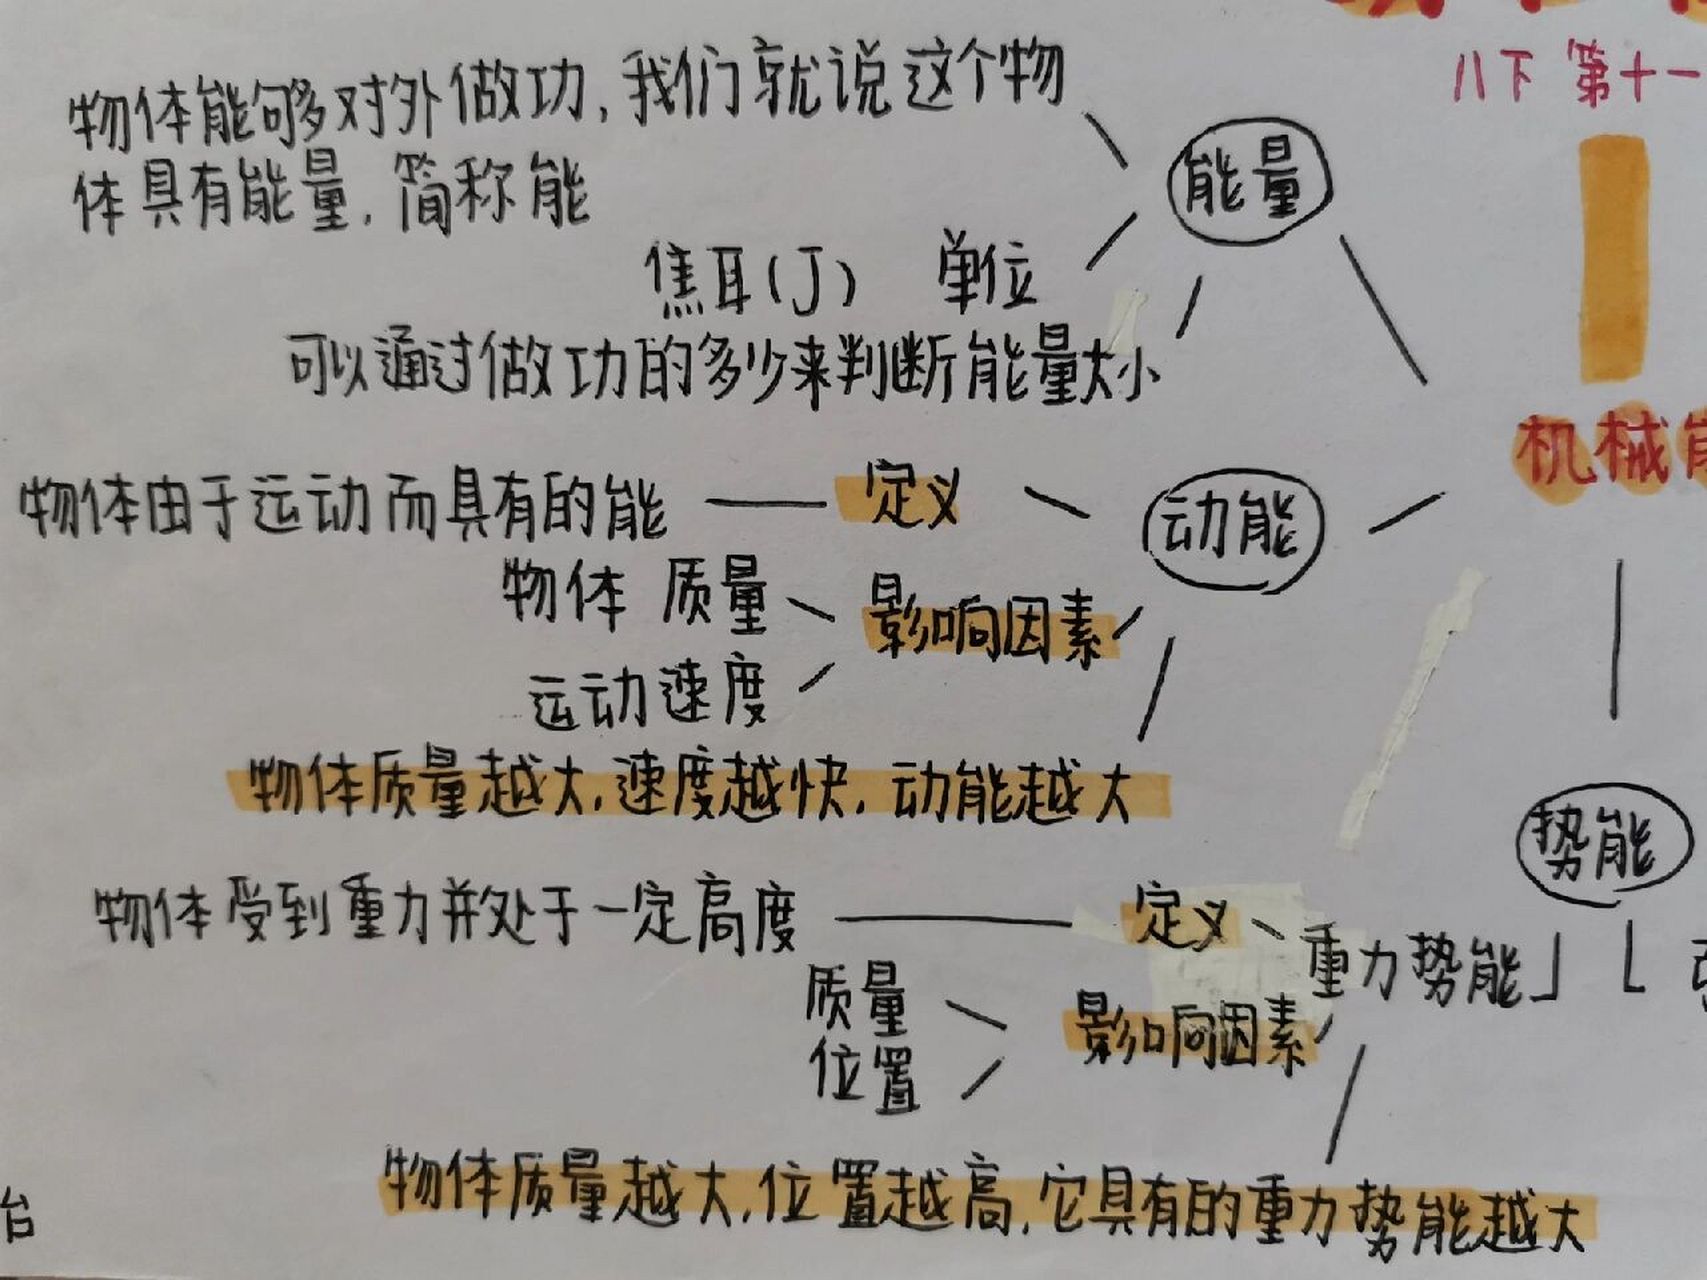 八下 第十一
物体能够对外做功,我们就说这个物
体具有能量,简称能
能量
焦耳(J) 单位
可以通过做功的多少来判断能量大小
机械
物体由于运动而具有的能 定义
动能
物体 质量
影响因素
运动速度
物体质量越大,速度越快,动能越大
势能
物体受到重力并处于一定高度 定义
重力势能
质量
影响因素
位置
物体质量越大,位置越高,它具有的重力势能越大
台